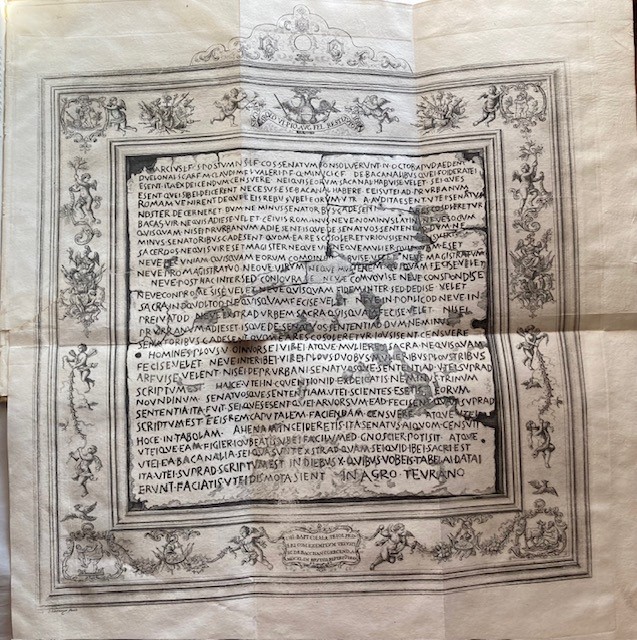 SVB VLPIO AVG FEL RESTIT
MARCIVS L F S POSTVMIVS L F COS SENATVM CONSOLVERVNT N OCTOB APVD AEDEM
DVELONAI SC ARF M CLAVDI M F L VALERI P F Q MINVCI C F DE BACANALIBVS QVEI FOIDERATEI
ESENT ITA EXDEICENDVM CENSVERE NEIQVIS EORVM SACANAL HABVISE VELET SEI QVES
ESENT QVEI SIBEI DEICERENT NECESVS ESE BACANAL HABERE EEIS VTEI AD PR VRBANVM
ROMAM VENIRENT DEQVE EEIS REBVS VBEI EORVM VTR A AVDITA ESENT VTEI SENATVS
NOSTER DECERNERET DVM NE MINVS SENATORBVS C ADESENT COSOLERETVR
BACAS VIR NEQVIS ADIESE VELET CEIVIS ROMANVS NEVE NOMINVS LATINI NEVE SOCIVM
QVISQVAM NISEI PR VRBANVM ADIESENT ISQVE DE SENATVOS SENTENTIAD DVM NE
MINVS SENATORIBVS C ADESENT QVOM EA RES COSOLERETVR IOVSISENT CENSVERE
SACERDOS NEQVIS VIR ESET MAGISTER NEQVE VIR NEQVE MVLIER QVISQVAM ESET
NEVE VNIAM QVISQVAM EORVM COMOINEM HABVISE VELET NEVE MAGISTRATVM
NEVE PRO MAGISTRATVO NEQVE VIRVM NEQVE MVLIEREM QVIQVAM FECISE VELET
NEVE POST HAC INTER SED CONIOVRASE NEVE COMVOVISE NEVE CONSPONDISE
NEVE CONPROMESISE VELET NEVE QVISQVAM FIDEM INTER SED DEDISE VELET
SACRA IN OQVOLTOD NE QVISQVAM FECISE VELET NEVE IN POPLICOD NEVE IN
PREIVATOD NEVE EXSTRAD VRBEM SACRA QVISQVAM FECISE VELET NISEI
PR VRBANVM ADIESET ISQVE DE SENATVOS SENTENTIAD DVM NE MINVS
SENATORIBVS C ADESENT QVOM EA RES COSOLERETVR IOVSISENT CENSVERE
HOMINES PLOVS V OINVORSEI VIREI ATQVE MVLIERES SACRA NE QVISQVAM
FECISE VELET NEVE INTER IBEI VIREI PLOVS DVOBVS MVLIERIBVS PLOVS TRIBVS
ARFVISE VELENT NISEI DE PR VRBANI SENATVOSQVE SENTENTIAD VTEI SVPRAD
SCRIPTVM EST HAICE VTEI IN COVENTIONID EXDEICATIS NE MINVS TRINVM
NOVNDINVM SENATVOSQVE SENTENTIAM VTEI SCIENTES ESETIS EORVM
SENTENTIA ITA FVIT SEI QVES ESENT QVEI ARVORSVM EAD FECISENT QVAM SVPRAD
SCRIPTVM EST EEIS REM CAPVTALEM FACIENDAM CENSVERE ATQVE VTEI
HOCE IN TABOLAM AHENAM INCEIDERETIS ITA SENATVS AIQVOM CENSVIT
VTEIQVE EAM FIGIER IOVBEATIS VBEI FACILVMED GNOSCIER POTISIT ATQVE
VTEI EA BACANALIA SEI QVA SVNT EXSTRAD QVAM SEI QVID IBEI SACRI EST
ITA VTEI SVPRAD SCRIPTVM EST IN DIEBVS X QVIBVS VOBEIS TABELAI DATAI
ERVNT FACIATIS VTEI DISMOTA SIENT IN AGRO TEVRANO